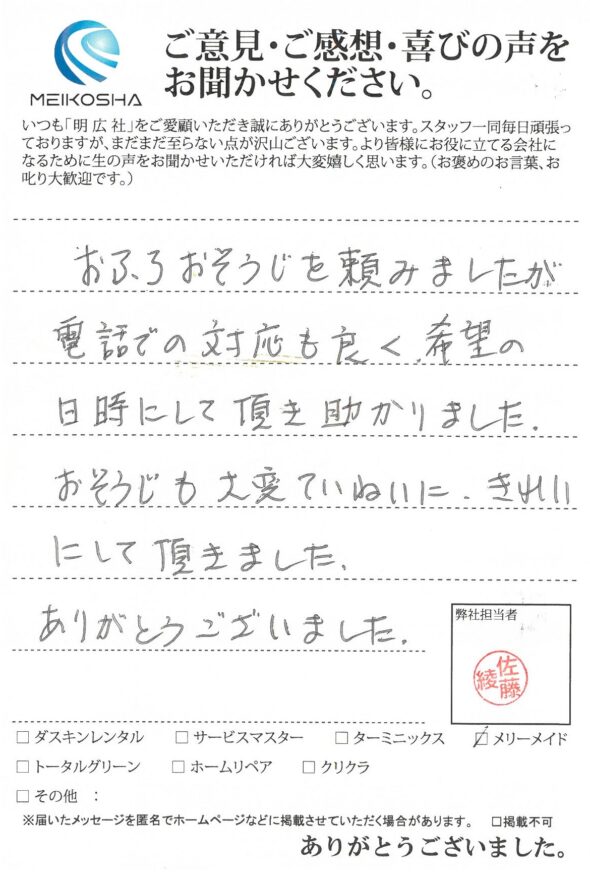 MEIKOSHA
ご意見・ご感想・喜びの声を
お聞かせください。
いつも「明広社」をご愛顧いただき誠にありがとうございます。スタッフ一同毎日頑張っ
ておりますが、まだまだ至らない点が沢山ございます。より皆様にお役に立てる会社に
なるために生の声をお聞かせいただければ大変嬉しく思います。（お褒めのお言葉、お
叱り大歓迎です。）
おふろおそうじを頼みましたが
電話での対応も良く、希望の
日時にして頂き助かりました。
おそうじも大変ていねいに、きれい
にして頂きました。
ありがとうございました。
弊社担当者
佐藤
綾
□ダスキンレンタル □サービスマスター □ターミニックス ☑メリーメイド
□トータルグリーン □ホームリペア □クリクラ
□その他 ：
※届いたメッセージを匿名でホームページなどに掲載させていただく場合があります。 □掲載不可
ありがとうございました。